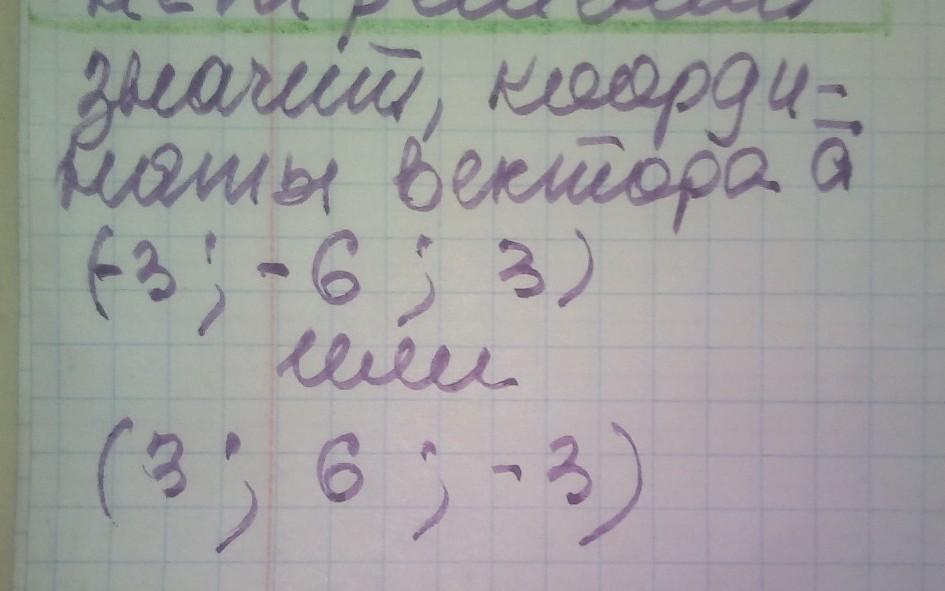 значит, коорди-
наты вектора a⃗
(-3 ; -6 ; 3)
или
(3 ; 6 ; -3)